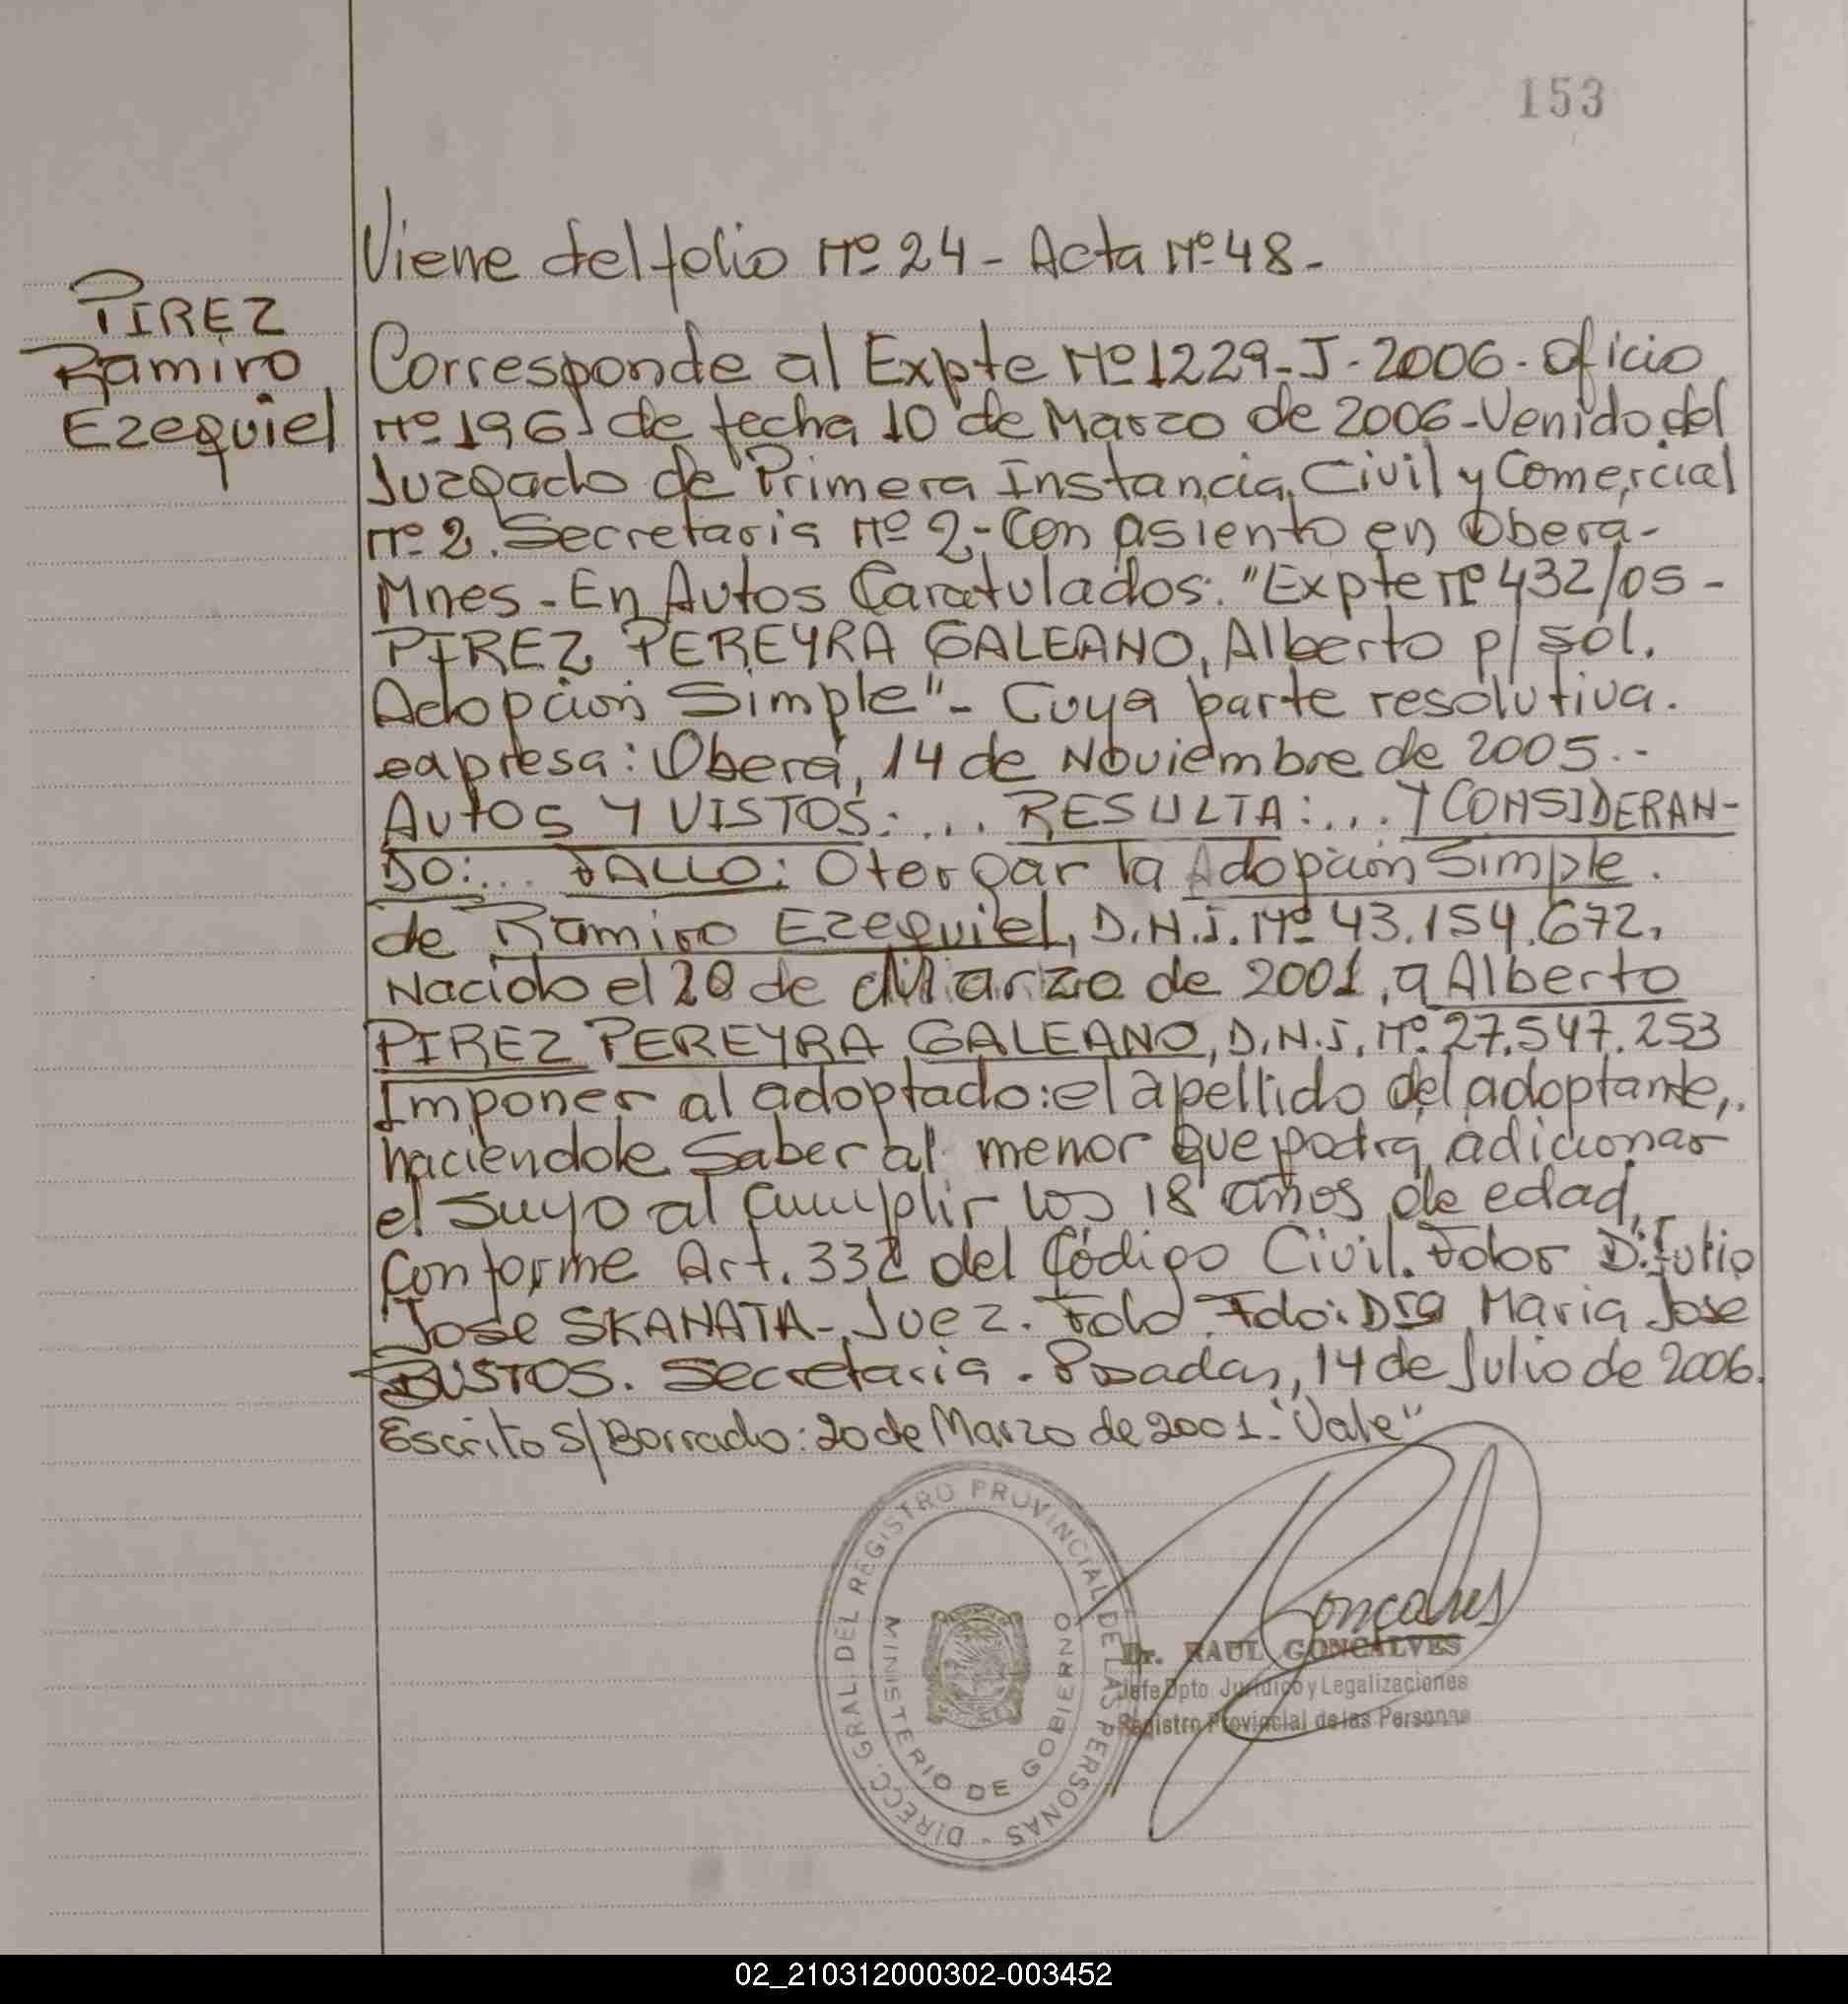 153
Viene del folio Nº 24 - Acta Nº 48 -
PIREZ
Ramiro
Ezequiel
Corresponde al Expte Nº 1229-J-2006-Oficio
Nº 196 de fecha 10 de Marzo de 2006-Venido del
Juzgado de Primera Instancia Civil y Comercial
Nº 2. Secretaria Nº 2-Con asiento en Oberá-
Mnes-En Autos Caratulados: "Expte Nº 432/05-
PIREZ PEREYRA GALEANO, Alberto p/ sol.
Adopción Simple"- Cuya parte resolutiva.
expresa: Oberá, 14 de Noviembre de 2005.-
AUTOS Y VISTOS: ... RESULTA: ... Y CONSIDERAN-
DO: ... FALLO: Otorgar la Adopción Simple.
de Ramiro Ezequiel, D.N.I. Nº 43.154.672,
Nacido el 20 de Marzo de 2001, a Alberto
PIREZ PEREYRA GALEANO, D.N.I. Nº 27.547.253
Imponer al adoptado: el apellido del adoptante,.
haciendole Saber al menor que podrá adicionar
el suyo al cumplir los 18 años de edad,
conforme Art. 332 del Código Civil. Fdor D. Julio
Jose SKANATA-Juez. Fdo Fdo: Dra Maria Jose
BUSTOS. Secretaria. Posadas, 14 de Julio de 2006.
Escrito S/ Borrado: 20 de Marzo de 2001-"Vale"
DIRECC. GRAL. DEL REGISTRO PROVINCIAL DE LAS PERSONAS -
MINISTERIO DE GOBIERNO
Goncalves
Dr. RAUL GONCALVES
Jefe Dpto. Jurídico y Legalizaciones
Registro Provincial de las Personas
02_210312000302-003452